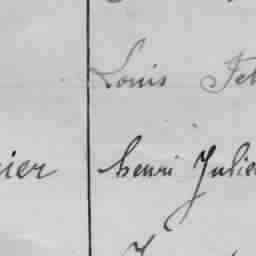 Louis Fel
nier henri Julie